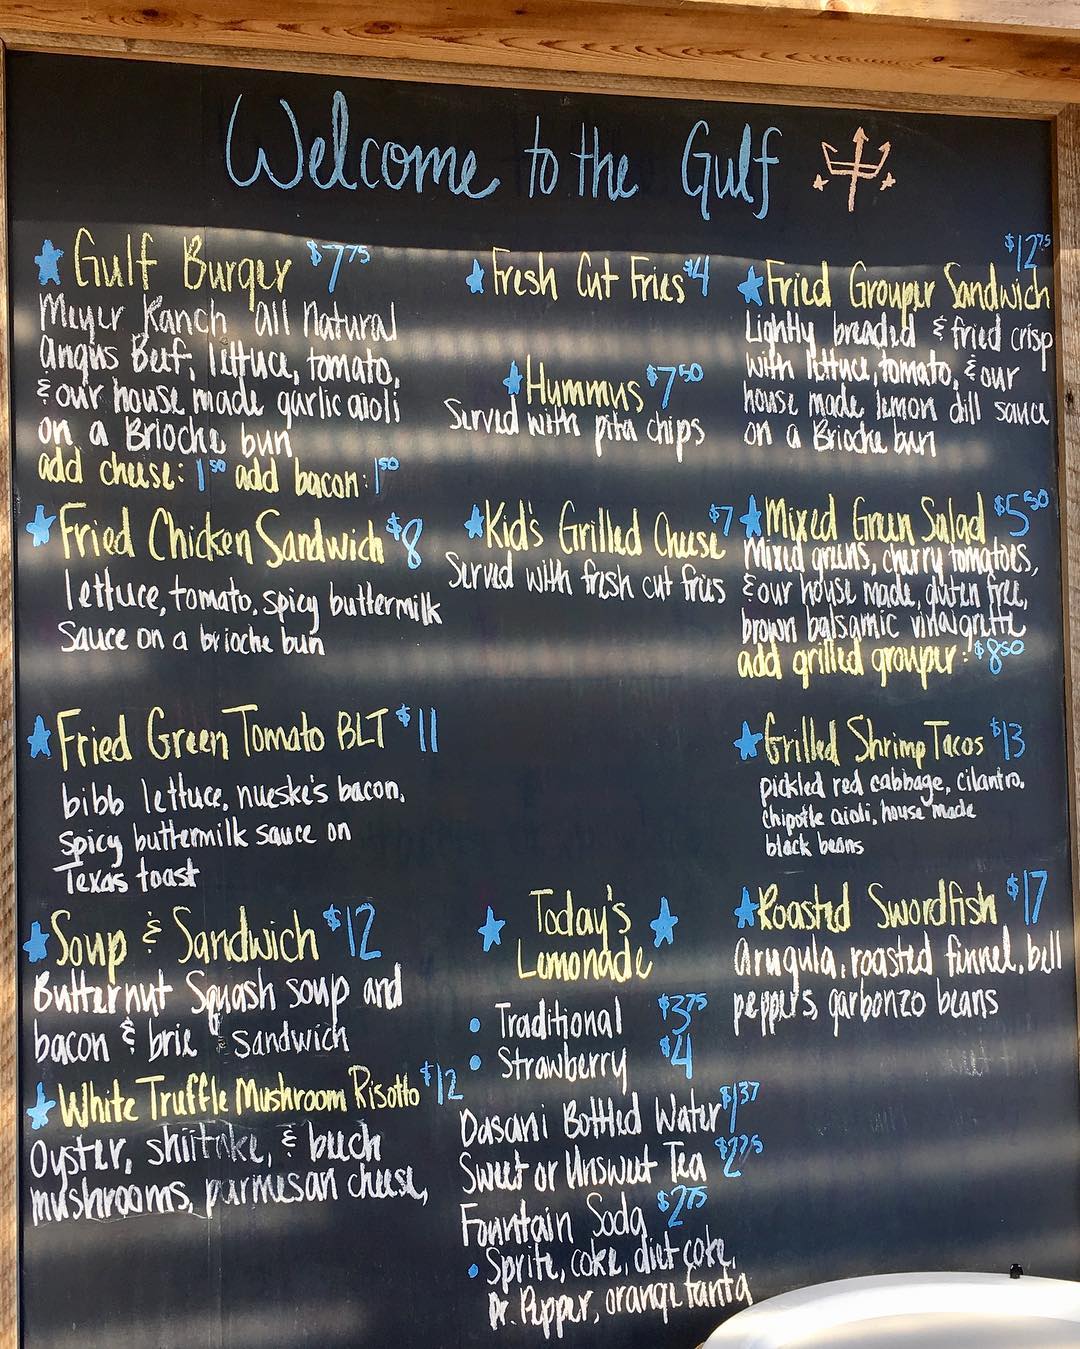 Welcome to the Gulf
Gulf Burger $7.75
Meyer Ranch all natural
angus Beef, lettuce, tomato,
& our house made garlic aioli
on a Brioche bun
add cheese: 1.50 add bacon: 1.50
Fried Chicken Sandwich $8
lettuce, tomato, spicy buttermilk
Sauce on a brioche bun
Fried Green Tomato BLT $11
bibb lettuce, nueske's bacon,
spicy buttermilk sauce on
Texas toast
Soup & Sandwich $12
Butternut Squash soup and
bacon & brie sandwich
White Truffle Mushroom Risotto $12
Oyster, shiitake, & beech
mushrooms, parmesan cheese,
Fresh Cut Fries $4
Hummus $7.50
Served with pita chips
Kid's Grilled Cheese $7
Served with fresh cut fries
Today's
Lemonade
• Traditional $3.75
• Strawberry $4
Dasani Bottled Water $1.37
Sweet or Unsweet Tea $2.75
Fountain Soda $2.75
• Sprite, coke, diet coke,
Dr. Pepper, orange fanta
$12.75
Fried Grouper Sandwich
Lightly breaded & fried crisp
with lettuce, tomato, & our
house made lemon dill sauce
on a Brioche bun
Mixed Green Salad $5.50
Mixed greens, cherry tomatoes,
& our house made, gluten free,
brown balsamic vinaigrette
add grilled grouper: $8.50
Grilled Shrimp Tacos $13
pickled red cabbage, cilantro,
chipotle aioli, house made
black beans
Roasted Swordfish $17
Arugula, roasted fennel, bell
peppers, garbonzo beans